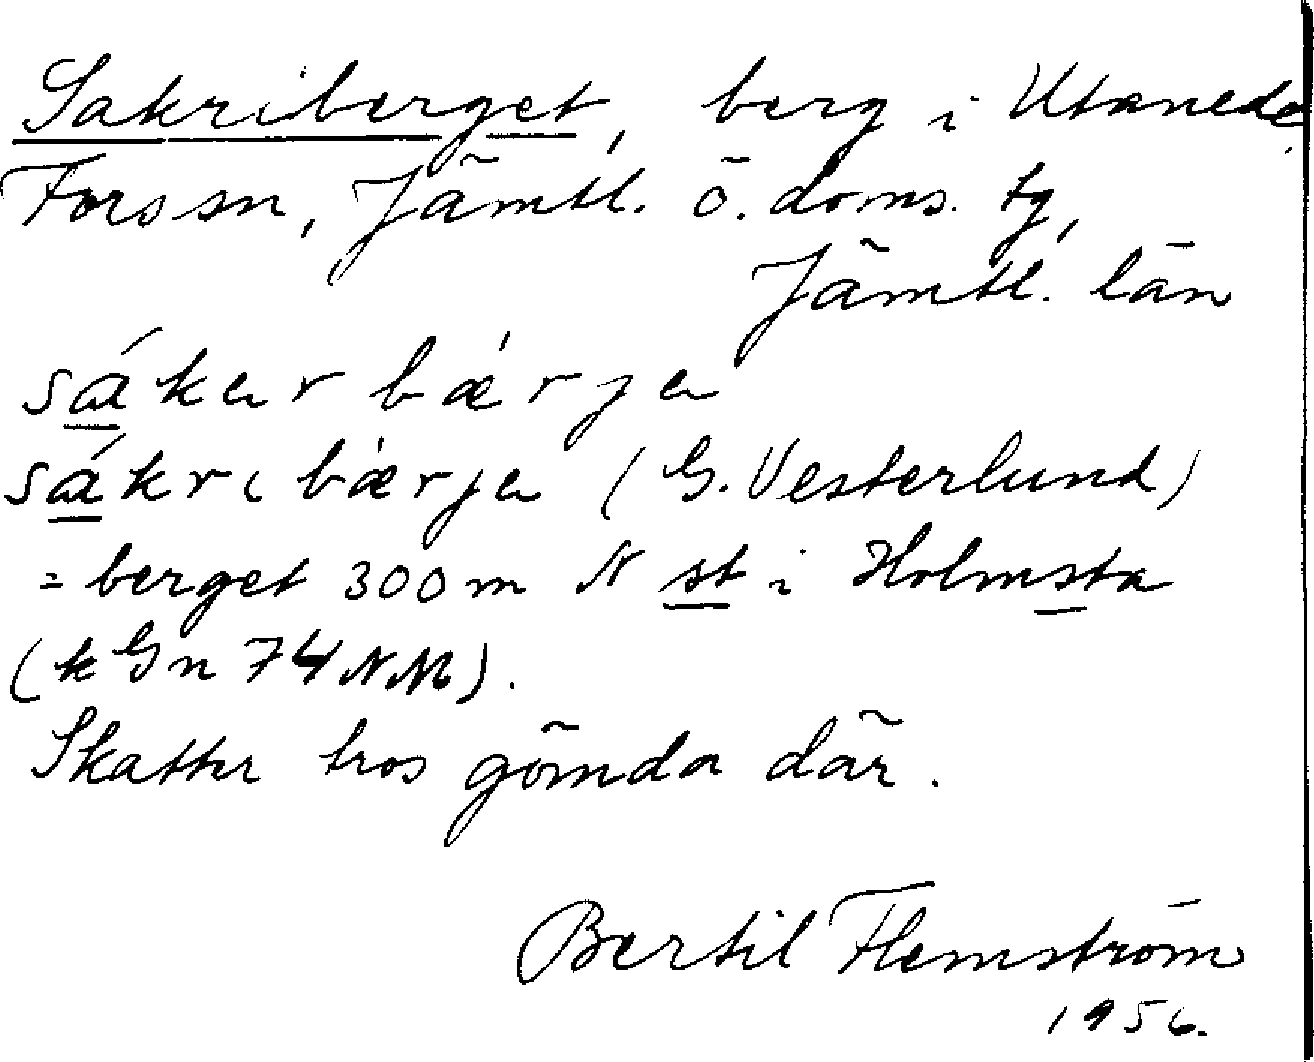 Sakriberget, berg i Utanede
Fors sn, Jämtl. ö. doms. tg,
Jämtl. län
sákɐr bǽrjɐ
sákrɩ bǽrjɐ (G. Vesterlund)
= berget 300 m N st i Holmsta
(k Gn 74 NM).
Skatter tros gömda där.
Bertil Flemström
1956.